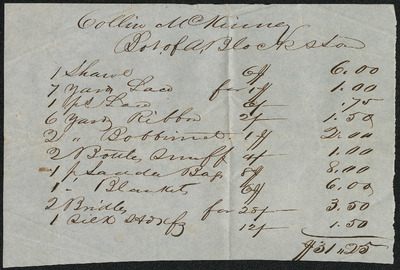 Collin McKinney
Bot. of A Blackston
1 Shawl 6/ 6.00
7 Yards Lace for 1/ 1.00
1 ps Lace 6/ .75
6 Yards Ribbon 2/ 1.50
2 " Bobbinet 1 2.00
2 Bottles Snuff 4/ 1.00
1 p Saddle Bags 8.00
1 " Blankets 6/ 6.00
2 Bridles for 3.50
1 Silk 12/ 1.50
$31.25